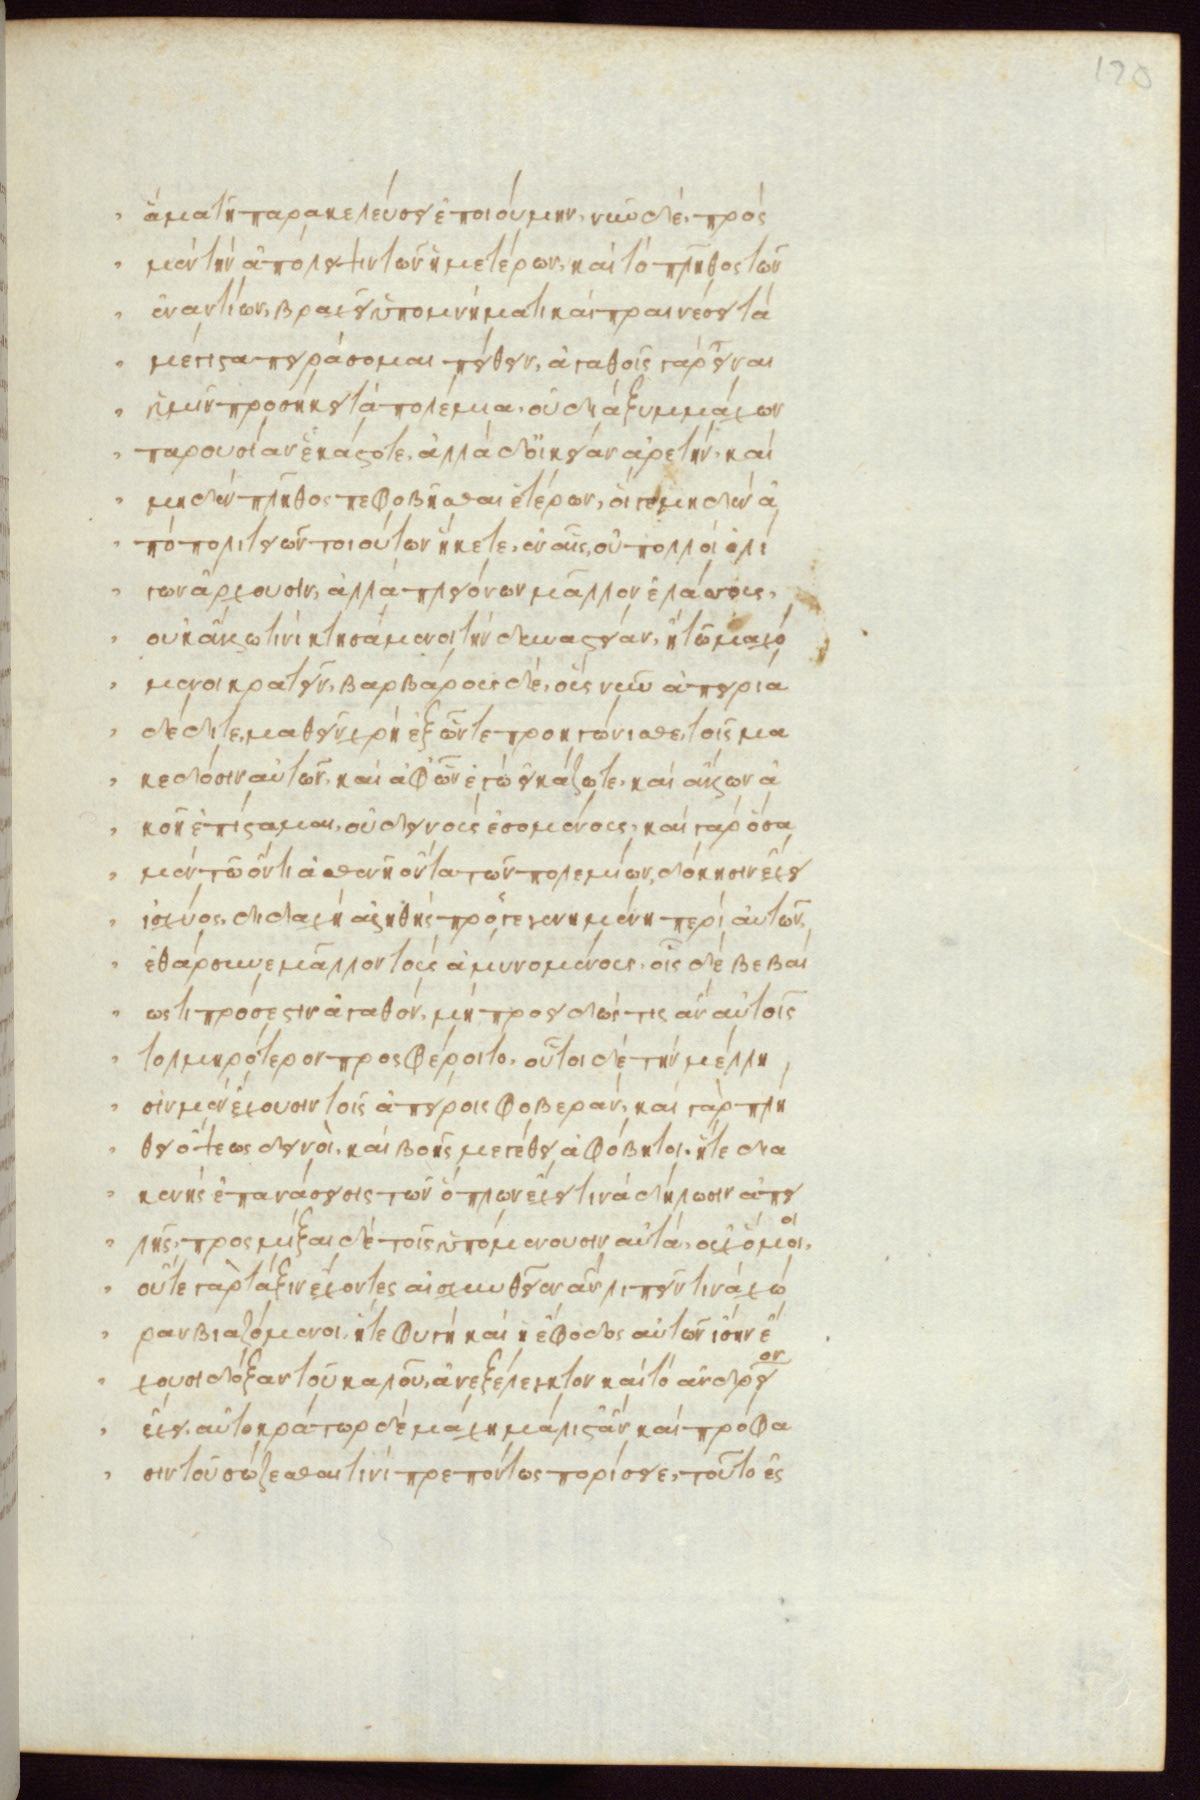 120
ἅμα τῆ παρακελεύσει ἐποιούμην, νῦν δὲ, πρὸς
μὲν τὴν ἀπόλειψιν τῶν ἡμετέρων, καὶ τὸ πλῆθος τῶν
ἐναντίων, βραχεῖ ὑπομνήματι καὶ πραινέσει τὰ
μέγιστα πειράσομαι πείθειν, ἀγαθοῖς γὰρ εἶναι
ὑμῖν προσήκει τὰ πολέμια, οὐ διὰ ξυμμάχων
παρουσίαν ἑκάστοτε, ἀλλὰ δι' οἰκείαν ἀρετὴν, καὶ
μηδὲν πλῆθος πεφοβῆσθαι ἑτέρων, οἵ γε μηδὲν ἀ
πὸ πολιτειῶν τοιούτων ἥκετε, ἐν αἷς, οὐ πολλοὶ ὀλί
γων ἄρχουσιν, ἀλλὰ πλειόνων μᾶλλον ἐλάσσοις,
οὐκ ἄλλω τινὶ κτησάμενοι τὴν δυναστείαν, ἢ τῶ μαχό
μενοι κρατεῖν, βαρβάροις δὲ, οὓς νῦν ἀπειρία
δέδιτε, μαθεῖν χρὴ ἐξ ὧν τε προηγώνισθε, τοῖς μα
κεδόσιν αὐτῶν, καὶ ἀφ' ὧν ἐγὼ εἰκάζω τε, καὶ ἄλλων ἀ
κοῆ ἐπίσταμαι, οὐ δεινοὺς ἐσομένους, καὶ γὰρ ὅσα
μὲν τῶ ὄντι ἀσθενῆ ὄντα τῶν πολεμίων, δόκησιν ἔχει
ἰσχύος, διδαχὴ ἀληθὴς προσγενημένη περὶ αὐτῶν,
ἐθάρσυνε μᾶλλον τοὺς ἀμυνομένους, οἷς δὲ βεβαί
ως τι πρόσεστιν ἀγαθὸν, μὴ προειδώς τις ἂν αὐτοῖς
τολμηρότερον προσφέροιτο, οὗτοι δὲ τὴν μέλλη
σιν μὲν ἔχουσιν τοῖς ἀπείροις φοβερὰν, καὶ γὰρ πλή
θει ὄψεως δεινοὶ, καὶ βοῆς μεγέθει ἀφόβητοι, ἥτε δια
κενῆς ἐπανάσεισις τῶν ὅπλων ἔχει τινὰ δήλωσιν ἀπει
λῆς, προσμίξαι δὲ τοῖς ὑπομένουσιν αὐτὰ, οὐχ ὅμοιοι,
οὔτε γὰρ τάξιν ἔχοντες αἰσχυνθεῖεν ἂν λιπεῖν τινὰ χώ
ραν βιαζόμενοι, ἥτε φυγὴ καὶ ἡ ἔφοδος αὐτῶν ἴσην ἔ
χουσι δόξαν τοῦ καλοῦ, ἀνεξέλεγκτον καὶ τὸ ἀνδρεῖον
ἔχει, αὐτοκράτωρ δὲ μάχη μάλιστ' ἂν καὶ πρόφα
σιν τοῦ σώζεσθαι τινὶ πρεπόντως πορίσειε, τοῦτο ἐς